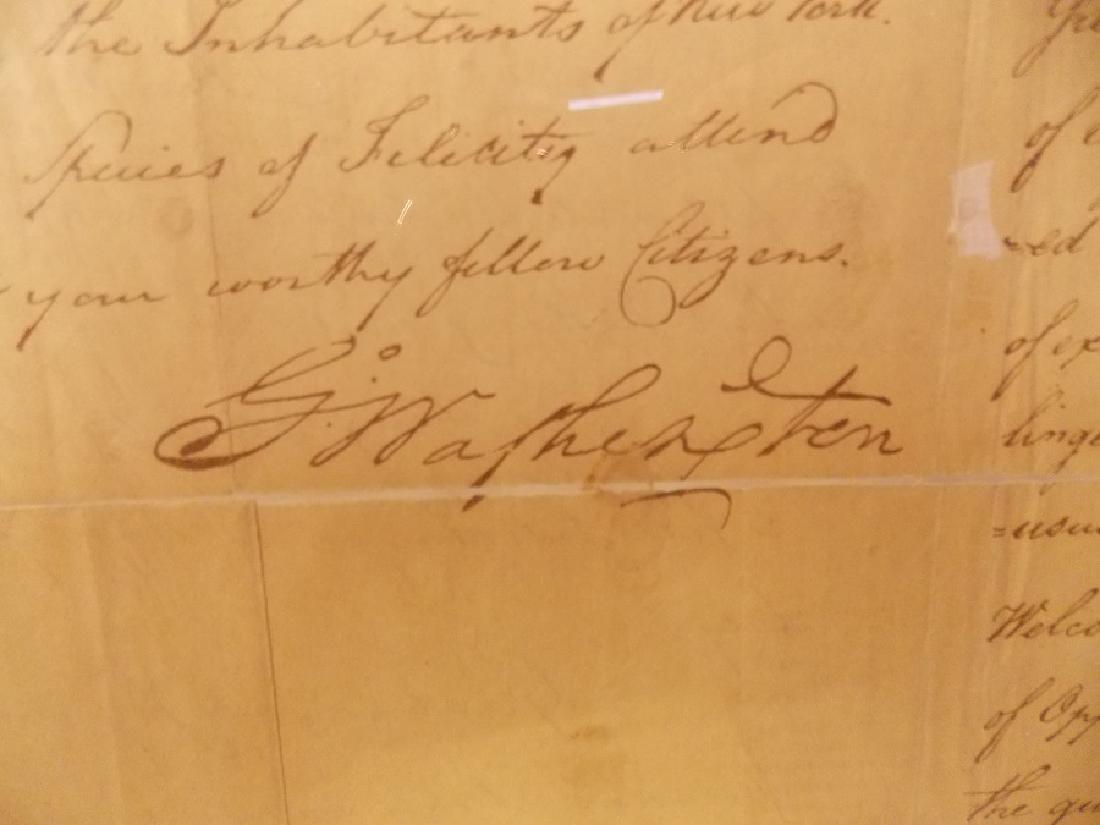 the Inhabitants of New York.
Species of Felicity attend
your worthy fellow Citizens.
G:Washington
of
ed
of ex
linge
=usu
Welco
of Opp
the qu